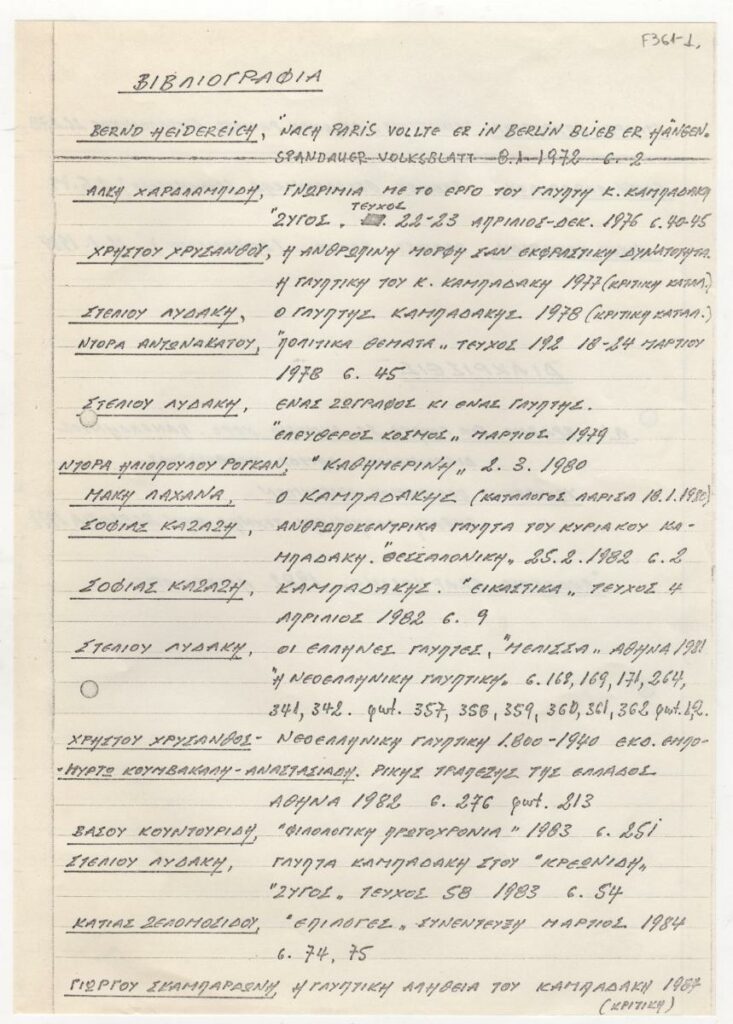 F361-1.
ΒΙΒΛΙΟΓΡΑΦΙΑ
BERND HEIDEREICH, "NACH PARIS VOLLTE ER IN BERLIN BLIEB ER HÄNGEN.
SPANDAUER VOLKSBLATT 8.1-1972 σ. 2
ΑΛΚΗ ΧΑΡΑΛΑΜΠΙΔΗ, ΓΝΩΡΙΜΙΑ ΜΕ ΤΟ ΕΡΓΟ ΤΟΥ ΓΛΥΠΤΗ Κ. ΚΑΜΠΑΔΑΚΗ
"ΖΥΓΟΣ" ΤΕΥΧΟΣ 22-23 ΑΠΡΙΛΙΟΣ-ΔΕΚ. 1976 σ. 40-45
ΧΡΗΣΤΟΥ ΧΡΥΣΑΝΘΟΥ, Η ΑΝΘΡΩΠΙΝΗ ΜΟΡΦΗ ΣΑΝ ΕΚΦΡΑΣΤΙΚΗ ΔΥΝΑΤΟΤΗΤΑ.
Η ΓΛΥΠΤΙΚΗ ΤΟΥ Κ. ΚΑΜΠΑΔΑΚΗ 1977 (ΚΡΙΤΙΚΗ ΚΑΤΑΛ.)
ΣΤΕΛΙΟΥ ΛΥΔΑΚΗ, Ο ΓΛΥΠΤΗΣ ΚΑΜΠΑΔΑΚΗΣ 1978 (ΚΡΙΤΙΚΗ ΚΑΤΑΛ.)
ΝΤΟΡΑ ΑΝΤΩΝΑΚΑΤΟΥ, "ΠΟΛΙΤΙΚΑ ΘΕΜΑΤΑ" ΤΕΥΧΟΣ 192 18-24 ΜΑΡΤΙΟΥ
1978 σ. 45
ΣΤΕΛΙΟΥ ΛΥΔΑΚΗ, ΕΝΑΣ ΖΩΓΡΑΦΟΣ ΚΙ ΕΝΑΣ ΓΛΥΠΤΗΣ.
"ΕΛΕΥΘΕΡΟΣ ΚΟΣΜΟΣ" ΜΑΡΤΙΟΣ 1979
ΝΤΟΡΑ ΗΛΙΟΠΟΥΛΟΥ ΡΟΓΚΑΝ, "ΚΑΘΗΜΕΡΙΝΗ" 2.3.1980
ΜΑΚΗ ΛΑΧΑΝΑ, Ο ΚΑΜΠΑΔΑΚΗΣ (ΚΑΤΑΛΟΓΟΣ ΛΑΡΙΣΑ 18.1.1980)
ΣΟΦΙΑΣ ΚΑΖΑΖΗ, ΑΝΘΡΩΠΟΚΕΝΤΡΙΚΑ ΓΛΥΠΤΑ ΤΟΥ ΚΥΡΙΑΚΟΥ ΚΑ-
ΜΠΑΔΑΚΗ. "ΘΕΣΣΑΛΟΝΙΚΗ" 25.2.1982 σ. 2
ΣΟΦΙΑΣ ΚΑΖΑΖΗ, ΚΑΜΠΑΔΑΚΗΣ. "ΕΙΚΑΣΤΙΚΑ" ΤΕΥΧΟΣ 4
ΑΠΡΙΛΙΟΣ 1982 σ. 9
ΣΤΕΛΙΟΥ ΛΥΔΑΚΗ, ΟΙ ΕΛΛΗΝΕΣ ΓΛΥΠΤΕΣ, "ΜΕΛΙΣΣΑ" ΑΘΗΝΑ 1981
"Η ΝΕΟΕΛΛΗΝΙΚΗ ΓΛΥΠΤΙΚΗ" σ. 168, 169, 171, 264,
341, 342. φωτ. 357, 358, 359, 360, 361, 362 φωτ. 1,2.
ΧΡΗΣΤΟΥ ΧΡΥΣΑΝΘΟΣ- ΝΕΟΕΛΛΗΝΙΚΗ ΓΛΥΠΤΙΚΗ 1.800-1940 ΕΚΔ. ΕΜΠΟ-
-ΜΥΡΤΩ ΚΟΥΜΒΑΚΑΛΗ-ΑΝΑΣΤΑΣΙΑΔΗ. ΡΙΚΗΣ ΤΡΑΠΕΖΗΣ ΤΗΣ ΕΛΛΑΔΟΣ
ΑΘΗΝΑ 1982 σ. 276 φωτ. 213
ΒΑΣΟΥ ΚΟΥΝΤΟΥΡΙΔΗ, "ΦΙΛΟΛΟΓΙΚΗ ΠΡΩΤΟΧΡΟΝΙΑ" 1983 σ. 251
ΣΤΕΛΙΟΥ ΛΥΔΑΚΗ, ΓΛΥΠΤΑ ΚΑΜΠΑΔΑΚΗ ΣΤΟΥ "ΚΡΕΩΝΙΔΗ"
"ΖΥΓΟΣ" ΤΕΥΧΟΣ 58 1983 σ. 54
ΚΑΤΙΑΣ ΖΕΛΟΜΟΣΙΔΟΥ, "ΕΠΙΛΟΓΕΣ" ΣΥΝΕΝΤΕΥΞΗ ΜΑΡΤΙΟΣ 1984
σ. 74, 75
ΓΙΩΡΓΟΥ ΣΚΑΜΠΑΡΔΩΝΗ, Η ΓΛΥΠΤΙΚΗ ΑΛΗΘΕΙΑ ΤΟΥ ΚΑΜΠΑΔΑΚΗ 1987
(ΚΡΙΤΙΚΗ)